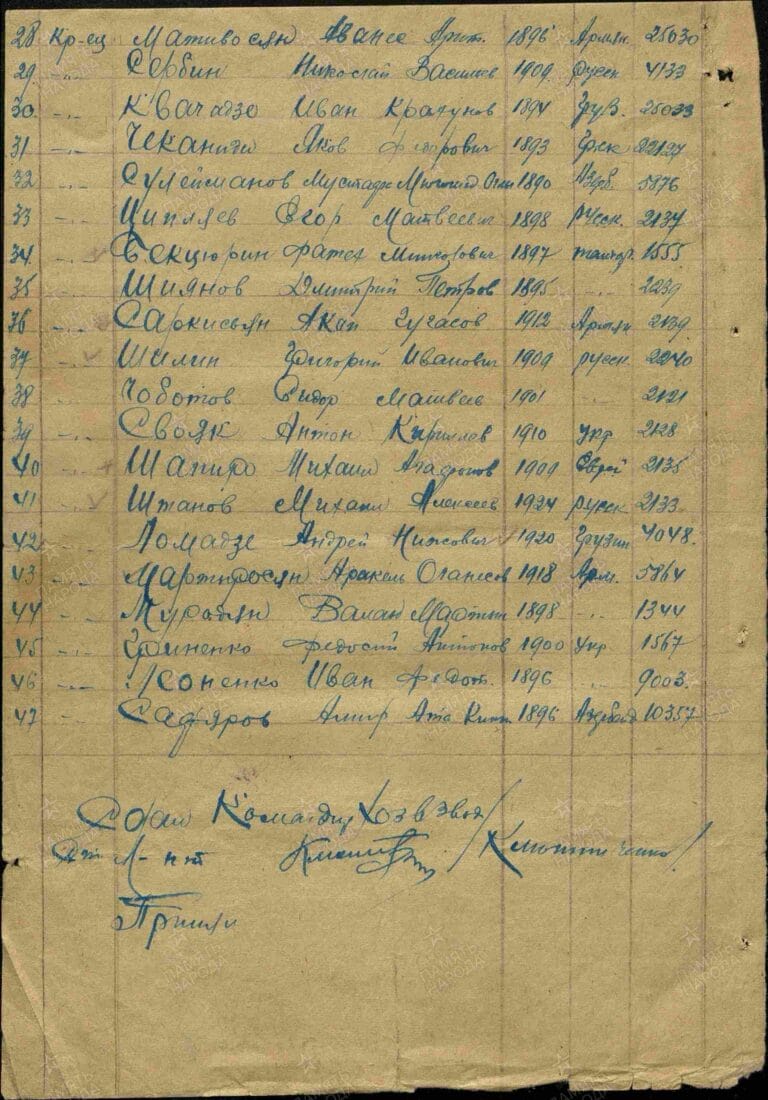 28 Кр-ец Мативосян Ванес Арт. 1896 Армян. 25030
29 -„- Сербин Николай Васильев 1909 Русск 4133
30 -„- Квачадзе Иван 1894 Груз. 25033
31 -„- Яков Федорович 1893 Грек 22127
32 -„- Сулейманов 1890 Азрб. 5876
33 -„- Ципляев Егор Матвеевич 1898 Русск. 2137
34 -„- Бекцюрин Фатех 1897 1555
35 -„- Шиянов Дмитрий Петров 1895 -„- 2239
36 -„- Саркисьян Акоп 1912 Армян 2139
37 -„- Шилин Григорий Иванович 1909 русск. 2240
38 -„- Чоботов Сидор Матвеев 1901 -„- 2121
39 -„- Свояк Антон Кириллов 1910 укр 2128
40 -„- Шапиро Михаил Агафонов 1909 Еврей 2135
41 -„- Штанов Михаил Алексеев 1924 русск 2133
42 -„- Ломадзе Андрей 1920 Грузин 4048.
43 -„- Мартиросян Аракель Оганесов 1918 Арм. 5864
44 -„- Мурадян 1898 -„- 1344
45 -„- Гриненко Федосий Антонов 1900 Укр 1567
46 -„- Иван Федот. 1896 -„- 9003.
47 -„- Сафяров Амир Ата 1896 10357
Сдал Командир Хозвзвода
Л-нт
Принял